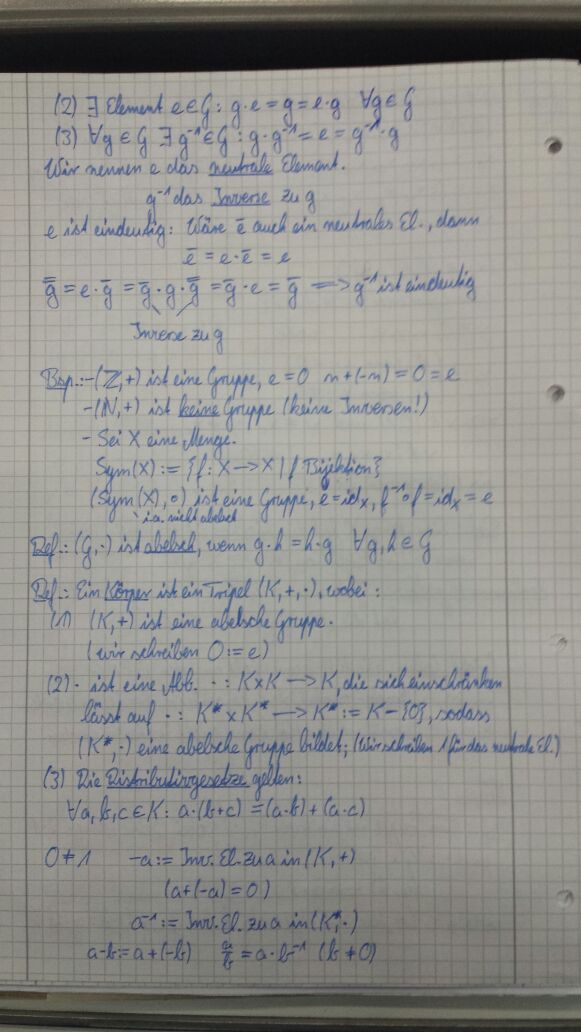 (2) ∃ Element e∈G: g·e = g = e·g ∀g∈G
(3) ∀g∈G ∃ g⁻¹∈G: g·g⁻¹ = e = g⁻¹·g
Wir nennen e das neutrale Element.
g⁻¹ das Inverse zu g
e ist eindeutig: Wäre ē auch ein neutrales El., dann
ē = e·ē = e
g̿ = e·ḡ = ḡ·g·g̿ = ḡ·e = ḡ ⟹ g⁻¹ ist eindeutig
Inverse zu g
Bsp.: -(ℤ,+) ist eine Gruppe, e=0 n+(-n) = 0 = e
-(ℕ,+) ist keine Gruppe (keine Inversen!)
- Sei X eine Menge.
Sym(X) := {f: X → X | f Bijektion}
(Sym(X), ∘) ist eine Gruppe, e = id_X, f⁻¹∘f = id_X = e
i.a. nicht abelsch
Def.: (G,·) ist abelsch, wenn g·h = h·g ∀g,h∈G
Def.: Ein Körper ist ein Tripel (K,+,·), wobei:
(1) (K,+) ist eine abelsche Gruppe.
(wir schreiben 0:=e)
(2) · ist eine Abb. ·: K×K → K, die sich einschränken
lässt auf ·: K*×K* → K* := K-{0}, sodass
(K*,·) eine abelsche Gruppe bildet; (Wir schreiben 1 für das neutrale El.)
(3) Die Distributivgesetze gelten:
∀a,b,c∈K: a·(b+c) = (a·b)+(a·c)
0≠1 -a := Inv. El. zu a in (K,+)
(a+(-a)=0)
a⁻¹ := Inv. El. zu a in (K*,·)
a-b := a+(-b) a/b = a·b⁻¹ (b≠0)